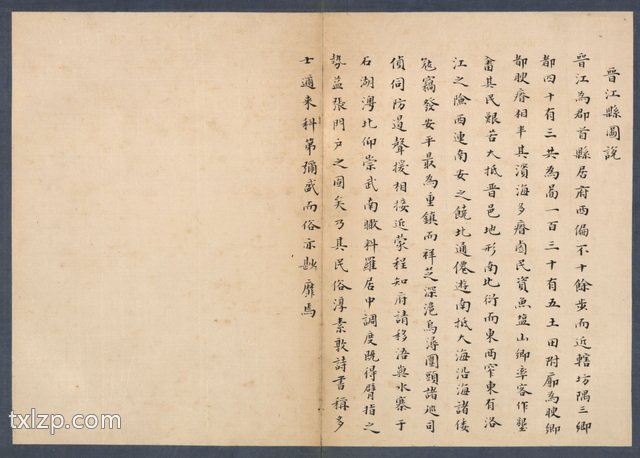 晉江縣圖說
晉江為郡首縣居府西偏不十餘步而近轄坊隅三鄉
都四十有三共為圖一百三十有五土田附廓為腴鄉
都腴瘠相半其濱海多瘠鹵民資魚鹽山鄉率客作墾
畬其民艱苦大抵晉邑地形南北衍而東西窄東有洛
江之險西連南安之饒北通僊遊南抵大海沿海諸倭
寇竊發安平最為重鎮而祥芝深滬烏潯圍頭諸巡司
偵伺防遏聲援相接近蒙程知府請移浯嶼水寨于
石湖灣北仰崇武南瞰料羅居中調度既得臂指之
勢益張門戶之固矣乃其民俗淳素敦詩書稱多
士邇來科第彌盛而俗亦漸靡焉
txlzp.com